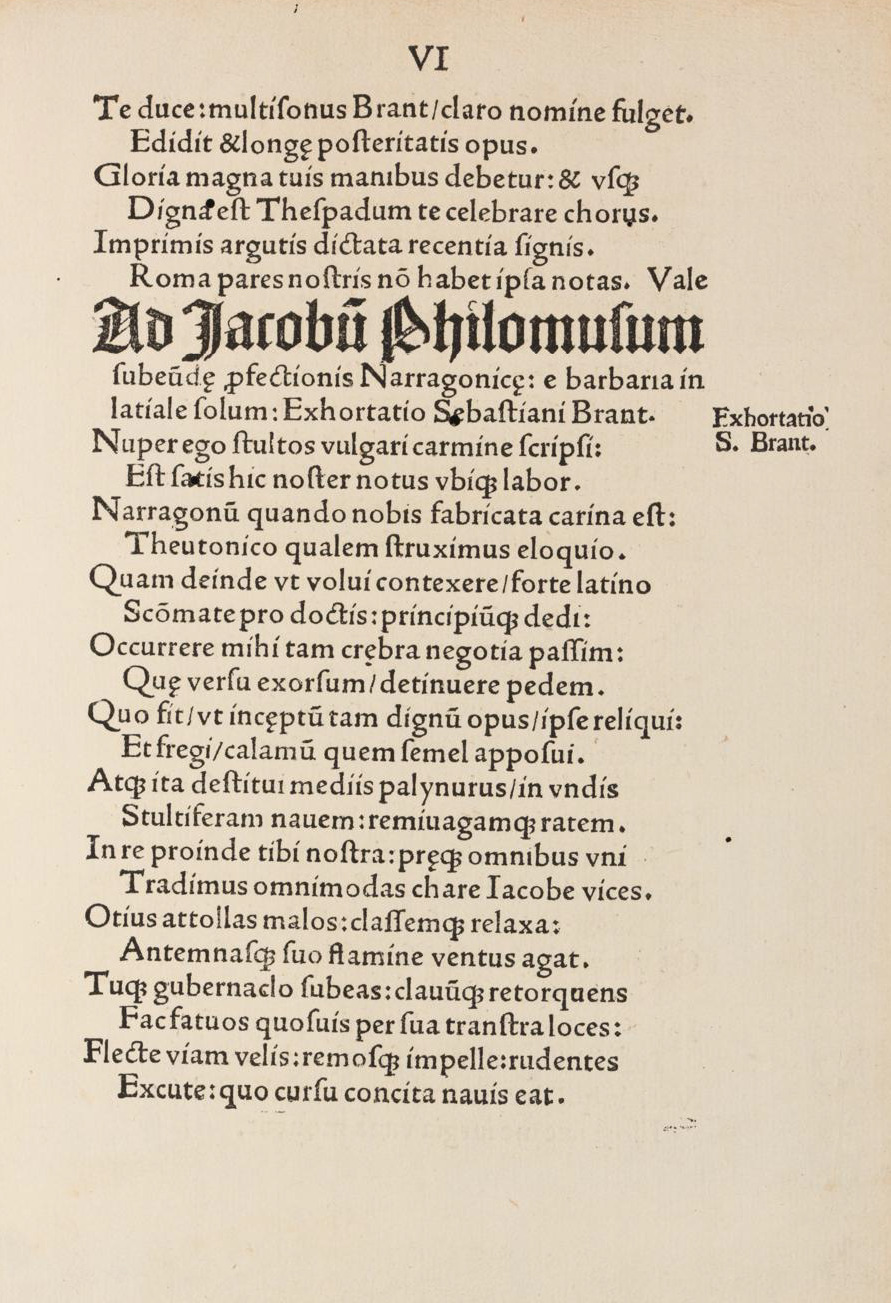 VI
Te duce:multiſonus Brant/claro nomine fulget.
Edidit &longę poſteritatis opus.
Gloria magna tuis manibus debetur:& vſꝗ
Digna eſt Theſpadum te celebrare chorus.
Imprimis argutis dictata recentia ſignis.
Roma pares noſtris nō habet ipſa notas. Vale
Ad Jacobū Philomuſum
ſubeūdę ꝓfectionis Narragonicę: e barbaria in
latiale ſolum: Exhortatio Sebaſtiani Brant.
Exhortatio
S. Brant.
Nuper ego ſtultos vulgari carmine ſcripſi:
Eſt ſatis hic noſter notus vbiꝗ labor.
Narragonū quando nobis fabricata carina eſt:
Theutonico qualem ſtruximus eloquio.
Quam deinde vt volui contexere/forte latino
Scōmate pro doctis:principiūꝗ dedi:
Occurrere mihi tam crębra negotia paſſim:
Quę verſu exorſum/detinuere pedem.
Quo fit/vt incęptū tam dignū opus/ipſe reliqui:
Et fregi/calamū quem ſemel appoſui.
Atꝗ ita deſtitui mediis palynurus/in vndis
Stultiferam nauem:remiuagamꝗ ratem.
In re proinde tibi noſtra:pręꝗ omnibus vni
Tradimus omnimodas chare Iacobe vices.
Otius attollas malos:claſſemꝗ relaxa:
Antemnaſꝗ ſuo flamine ventus agat.
Tuꝗ gubernaclo ſubeas:clauūꝗ retorquens
Fac fatuos quoſuis per ſua tranſtra loces:
Flecte viam velis:remoſꝗ impelle:rudentes
Excute:quo curſu concita nauis eat.